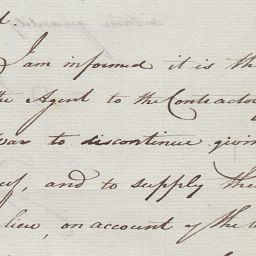 I am informed it is the
the Agent to the Contractor
War to discontinue givin
eef, and to supply the
lieu, on account of the